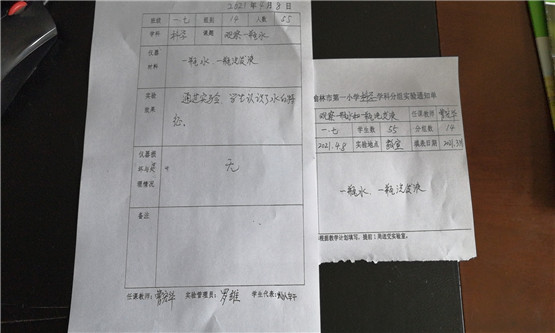 2021年4月8日
班级 一.七 组别 14 人数 55
学科 科学 课题 观察一瓶水
仪器
材料
一瓶水、一瓶洗发液
实验
效果
通过实验,学生认识了水的特
征。
仪器损
坏与
赔情况
无
备注
任课教师: 实验管理员: 罗雄 学生代表:
榆林市第一小学科学学科分组实验通知单
观察一瓶水和一瓶洗发液 任课教师
一.七 学生数 55 分组数 14
2021.4.8 实验地点 教室 填表日期 2021.3.31
一瓶水、一瓶洗发液
根据教学计划填写,提前1周送交实验室。